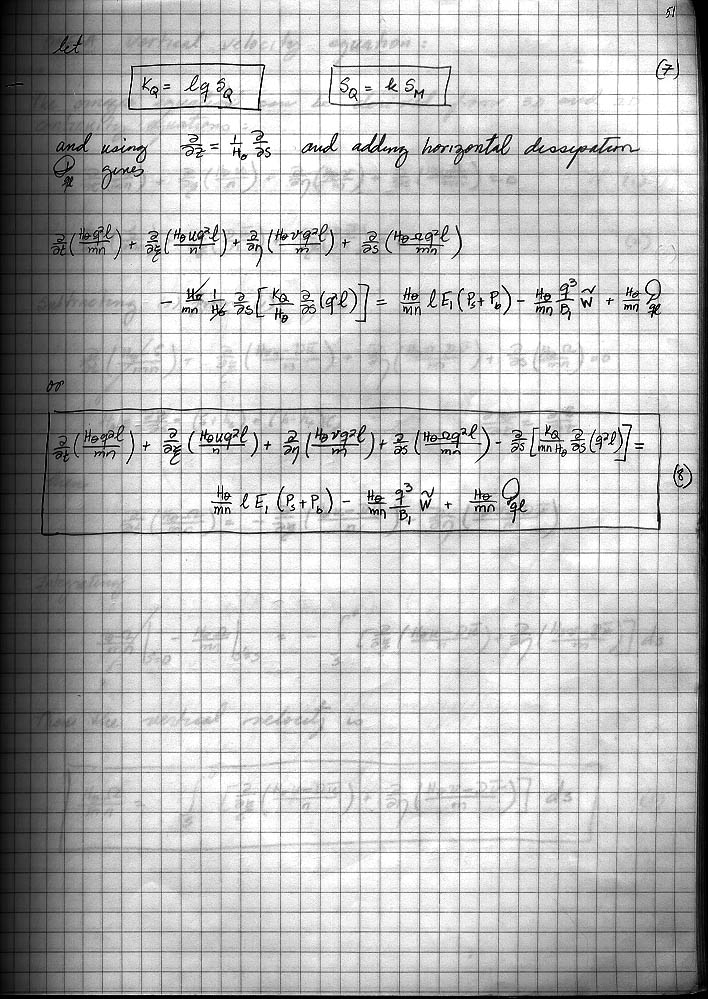 51
let
K_Q = l q S_Q    S_Q = k S_M    (7)
and using ∂/∂z = 1/H_θ ∂/∂s and adding horizontal dissipation
𝒟_ql gives
∂/∂t (H_θ q²l / mn) + ∂/∂ξ (H_θ u q²l / n) + ∂/∂η (H_θ v q²l / m) + ∂/∂s (H_θ Ω q²l / mn)
− H_θ/mn 1/H_θ ∂/∂s [K_Q/H_θ ∂/∂s (q²l)] = H_θ/mn l E₁ (P_s + P_b) − H_θ/mn q³/B₁ W̃ + H_θ/mn 𝒟_ql
or
∂/∂t (H_θ q²l / mn) + ∂/∂ξ (H_θ u q²l / n) + ∂/∂η (H_θ v q²l / m) + ∂/∂s (H_θ Ω q²l / mn) − ∂/∂s [K_Q / mn H_θ ∂/∂s (q²l)] =
H_θ/mn l E₁ (P_s + P_b) − H_θ/mn q³/B₁ W̃ + H_θ/mn 𝒟_ql    (8)